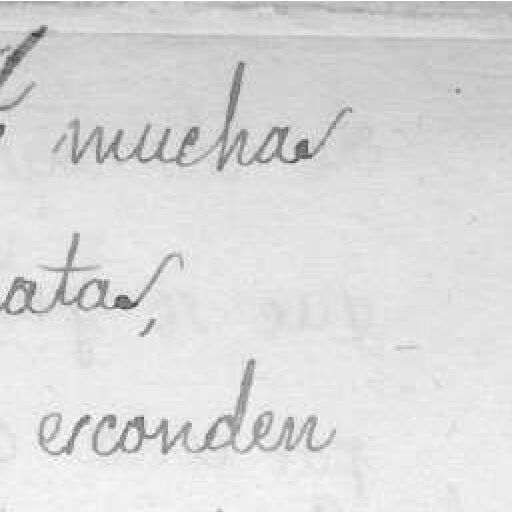 muchas
atas,
esconden